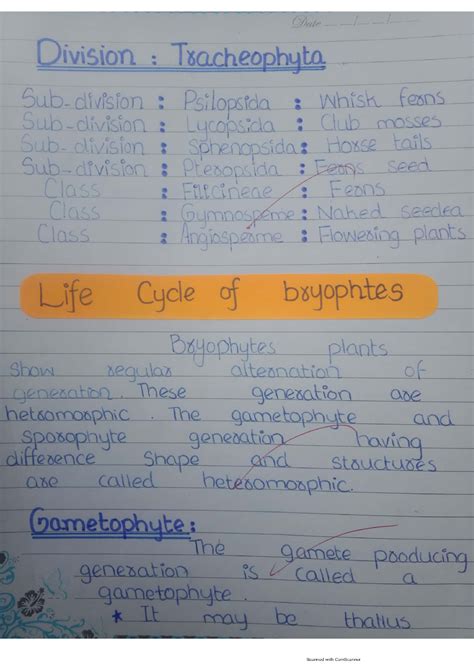 Date __/__/__
Division : Tracheophyta
Sub-division : Psilopsida : Whish ferns
Sub-division : Lycopsida : Club mosses
Sub-division : Sphenopsida : Horse tails
Sub-division : Pteropsida : Ferns seed
Class : Filicineae : Ferns
Class : Gymnosperme : Nahed seedea
Class : Angiosperme : Flowering plants
Life Cycle of bryophtes
Bryophytes plants
show regular alternation of
generation. These generation are
hetromorphic. The gametophyte and
sporophyte generation having
difference shape and structures
are called heteromorphic.
Gametophyte:
The gamete producing
generation is called a
gametophyte.
* It may be thallus
Scanned with CamScanner